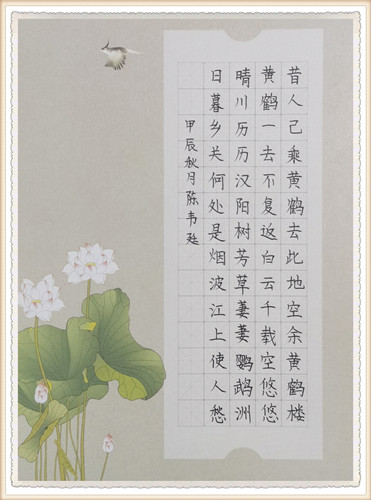 昔人已乘黄鹤去此地空余黄鹤楼
黄鹤一去不复返白云千载空悠悠
晴川历历汉阳树芳草萋萋鹦鹉洲
日暮乡关何处是烟波江上使人愁
甲辰秋月陈韦